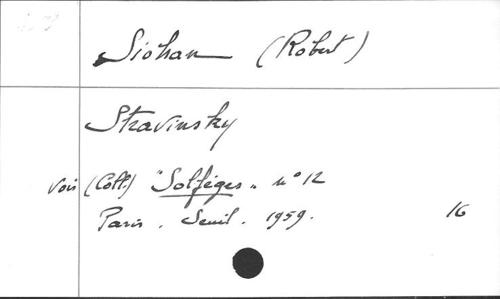 Siohan (Robert)
Stravinsky
Voir (Coll.) "Solfèges" n° 12
Paris. Seuil. 1959. 16